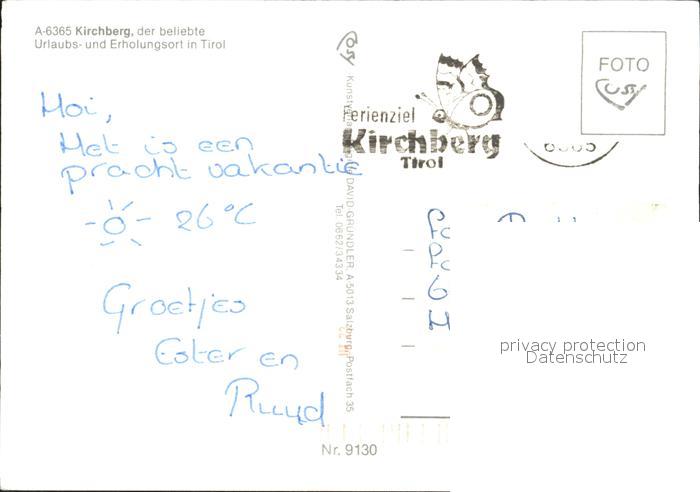 A-6365 Kirchberg, der beliebte
Urlaubs- und Erholungsort in Tirol
Hoi,
Het is een
pracht vakantie
26°C
Groetjes
Ester en
Ruud
DAVID GRÜNDLER, A-5013 Salzburg, Postfach 35
Tel. 0662/34334
Ferienziel
Kirchberg
Tirol
FOTO
privacy protection
Datenschutz
Nr. 9130